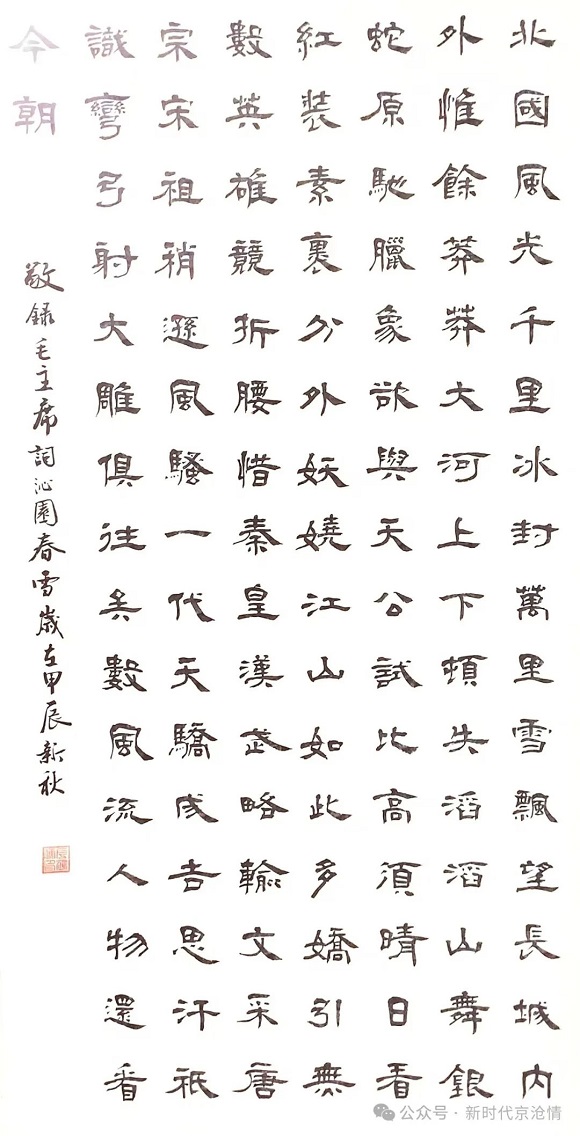 北國風光千里冰封萬里雪飄望長城内
外惟餘莽莽大河上下頓失滔滔山舞銀
蛇原馳臘象欲與天公試比高須晴日看
紅裝素裹分外妖嬈江山如此多嬌引無
數英雄競折腰惜秦皇漢武略輸文采唐
宗宋祖稍遜風騷一代天驕成吉思汗祇
識彎弓射大雕俱往矣數風流人物還看
今朝
敬錄毛主席詞沁園春雪歲在甲辰新秋
公众号 · 新时代京沧情